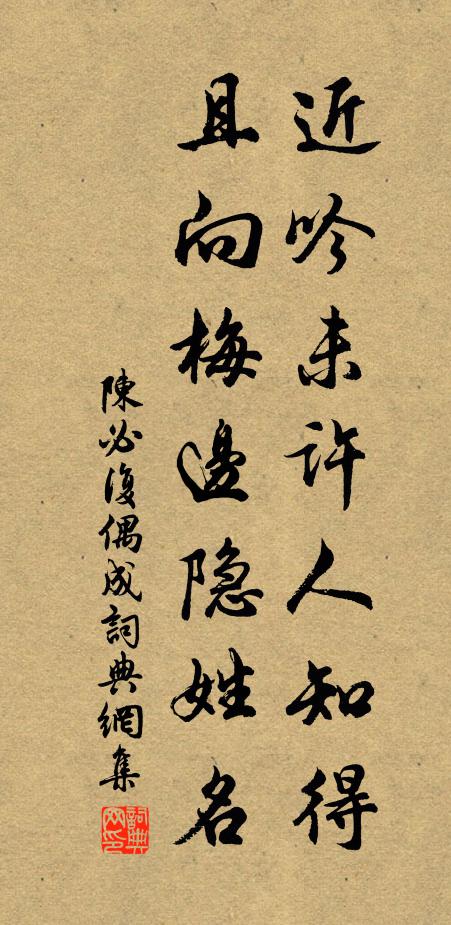 近吟未許人知得
且向梅邊隐姓名
陳必復偶成詞典網集
詞典网印